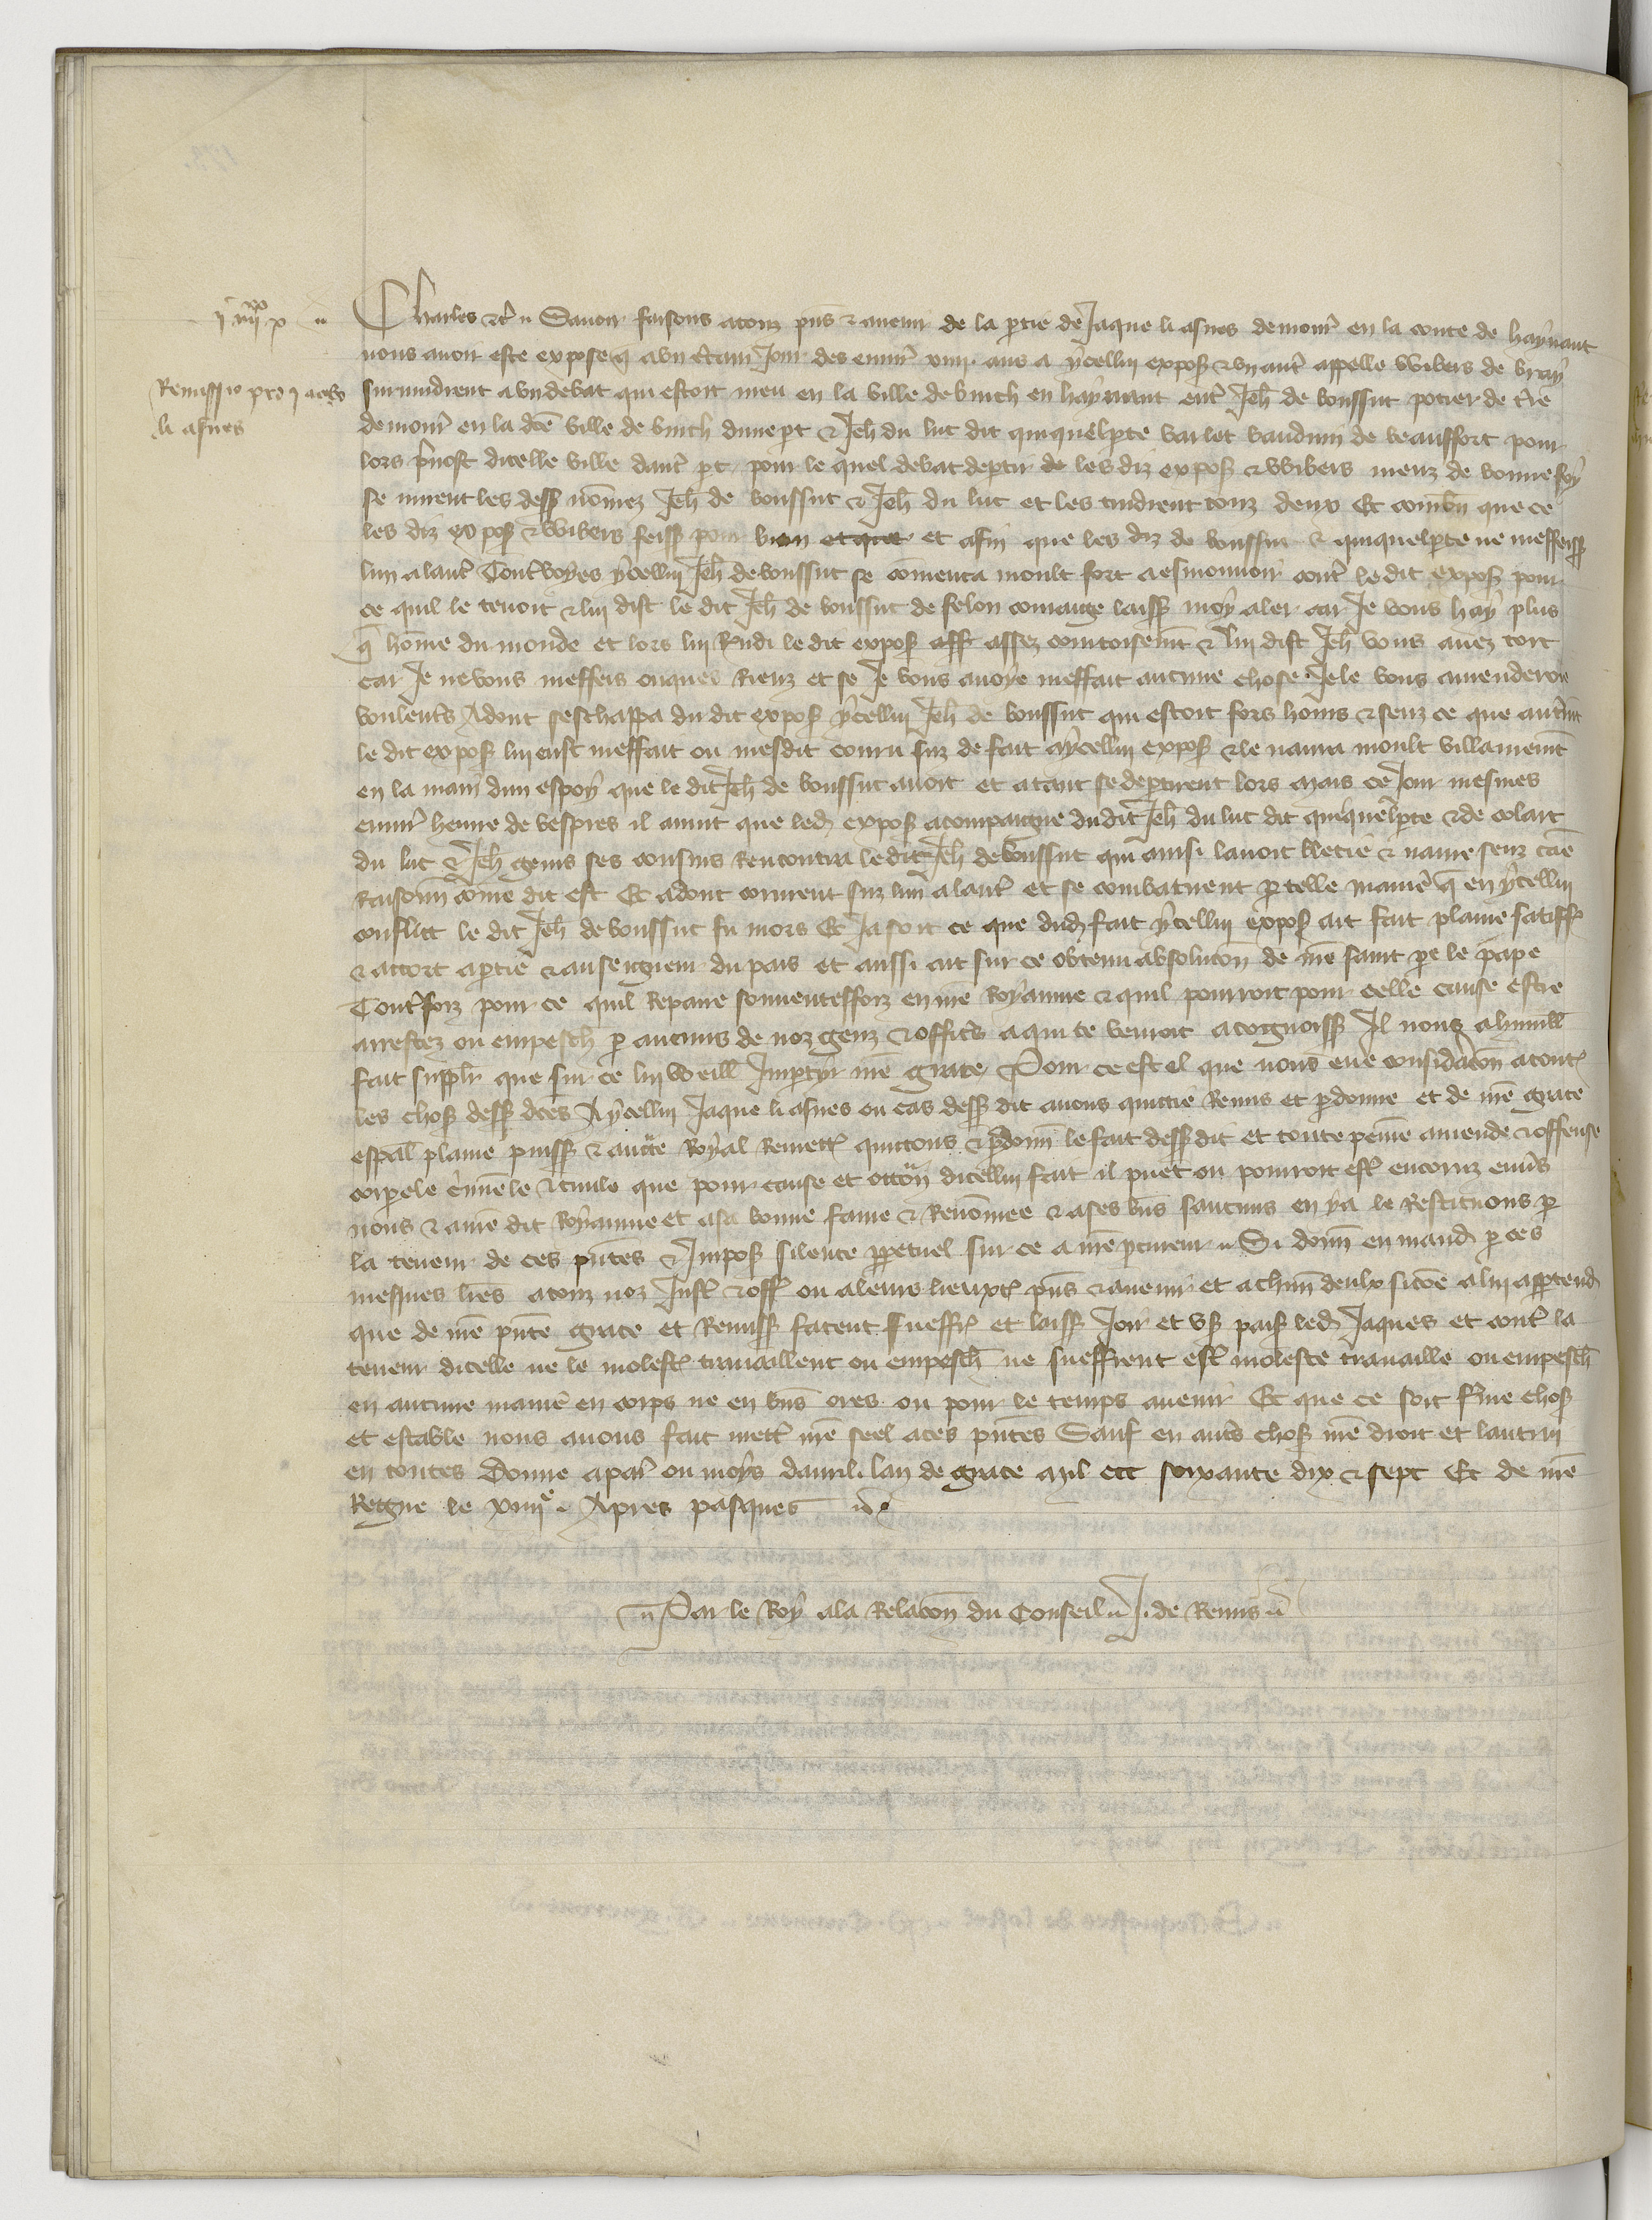 Charles etc. Savoir faisons a touz pns et avenir de la ptie de Jaque li asnes demour en la conte de haynaut
nous avoir este expose q a un ctain jour des environ xiiii ans a ycellui expos et un autre appelle Wibers de bray
Remissio pro Jacobo li asnes
survindrent a un debat qui estoit meu en la ville de binch en haynaut entr Jeh de boussut potier de tre
demour en la dce ville de binch dune pt et Jeh du luc dit quiquelpte varlet baudum de beauffort pour
lors pvost dicelle ville dautr pt pour le quel debat deptir les diz expos et Wibers meuz de bonne foy
se mirent les dess nommez Jeh de boussut et Jeh du luc et les tindrent touz deux Et combn que ce
les diz expos et Wibers feiss pour bien et afin que les diz de boussut et quiquelpte ne meffeiss
lun a lautr Toutvoyes ycellui Jeh de boussut se comenca moult fort a esmouvoir contr le dit expos pour
ce quil le tenoit et lui dist le dit Jeh de boussut de felon courage laiss moy aler car Je vous hay plus
q home du monde et lors lui Rndi le dit expos assez courtoisemt et lui dist Jeh vous avez tort
car Je ne vous meffeis onques Rienz et se Je vous avoye meffait aucune chose Je le vous amenderoie
voulents Adont seschappa du dit expos ycellui Jeh de boussut qui estoit fors homs et senz ce que autremt
le dit expos lui eust meffait ou mesdit couru suz de fait a ycellui expos et le navra moult villainemt
en la main dun espoy que le dit Jeh de boussut avoit et atant se deptirent lors Mais ce Jour mesmes
environ heure de vespres il avint que led expos acompaigne du dit Jeh du luc dit quiquelpte et de colart
du luc et Jeh genis ses cousins Rencontra le dit Jeh de boussut qui ainsi lavoit blecie et navre senz cae
Raisonn come dit est Et adont coururent suz lun a lautr et se combatirent p telle manie q en ycellui
conflict le dit Jeh de boussut fu mors Et Ja soit ce que dud fait ycellui expos ait fait plaine satiff
et accort a ptie et au seigneur du pais et aussi ait sur ce obtenu absolucon de nre saint pe le pape
Toutesfoiz pour ce quil Repaire souventeffoiz en nre Royaume et quil pourroit pour celle cause estre
arrestez ou empesch p aucuns de noz genz et offics a qui ce venroit a cognoiss Il nous a humill
fait supplir que sur ce lui Weill Imptir nre grace Pour ce est il que nous eue consideracon a toutes
les chos dess dces A ycellui Jaque li asnes ou cas dess dit avons quittie Remis et pdonne et de nre grace
espal plaine puiss et aucte Royal Remett quittons et pdonn le fait dess dit et toute peinne amende et offense
corpele cminele et civile que pour cause et occon dicellui fait il puet ou pourroit est encoruz envs
nous et a nre dit Royaume et a sa bonne fame et Renommee et a ses bns saucuns en y a le Restituons p
la teneur de ces pntes et Impos silence ppetuel sur ce a nre pcureur Si donn en mand p ces
mesmes lres a touz noz Just et off ou a leurs lieuxt pns et avenir et a chun deulx sicoe a lui apptend
que de nre pnte grace et Remiss facent sueffr et laiss Joir et us pais led Jaques et contr la
teneur dicelle ne le molest travaillent ou empesch ne sueffrent est moleste travaille ou empesch
en aucune manie en corps ne en bns ores ou pour le temps avenir Et que ce soit ferme chos
et estable nous avons fait mett nre seel a ces pntes Sauf en autrs chos nre droit et lautrui
en toutes Donne a paris ou moys davril lan de grace mil ccc soixante dix et sept Et de nre
Regne le xiiiie Apres pasques
Par le Roy a la Relacon du Conseil J. de Remis